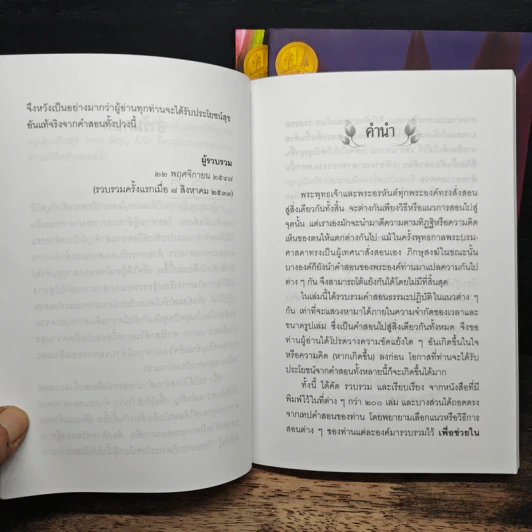 จึงหวังเป็นอย่างมากว่าผู้อ่านทุกท่านจะได้รับประโยชน์สุข
อันแท้จริงจากคำสอนทั้งปวงนี้
ผู้รวบรวม
๒๒ พฤศจิกายน ๒๕๔๗
(รวบรวมครั้งแรกเมื่อ ๗ สิงหาคม ๒๕๓๓)
คำนำ
พระพุทธเจ้าและพระอรหันต์ทุกพระองค์ทรงสั่งสอน
สู่สิ่งเดียวกันทั้งสิ้น จะต่างกันเพียงวิธีหรือแนวการสอนไปสู่
จุดนั้น แต่เราเองมักจะนำมาตีความตามทิฏฐิหรือความคิด
เห็นของตนให้แตกต่างกันไป แม้ในครั้งพุทธกาลพระบรม-
ศาสดาทรงเป็นผู้เทศนาสั่งสอนเอง ภิกษุสงฆ์ในขณะนั้น
บางองค์ก็ยังนำคำสอนของพระองค์ท่านมาแปลความกันไป
ต่าง ๆ กัน จึงสามารถโต้แย้งกันได้โดยไม่มีที่สิ้นสุด
ในเล่มนี้ได้รวบรวมคำสอนธรรมะปฏิบัติในแนวต่าง ๆ
กัน เท่าที่จะแสวงหามาได้ภายในความจำกัดของเวลาและ
ขนาดรูปเล่ม ซึ่งเป็นคำสอนไปสู่สิ่งเดียวกันทั้งหมด จึงขอ
ท่านผู้อ่านได้โปรดวางความขัดแย้งใด ๆ อันเกิดขึ้นในใจ
หรือความคิด (หากเกิดขึ้น) ลงก่อน โอกาสที่ท่านจะได้รับ
ประโยชน์จากคำสอนทั้งหลายนี้ก็จะเกิดขึ้นได้มาก
ทั้งนี้ ได้คัด รวบรวม และเรียบเรียง จากหนังสือที่มี
พิมพ์ไว้ในที่ต่าง ๆ กว่า ๒๐๐ เล่ม และบางส่วนได้ถอดตรง
จากเทปคำสอนของท่าน โดยพยายามเลือกแนวหรือวิธีการ
สอนต่าง ๆ ของท่านแต่ละองค์มารวบรวมไว้ เพื่อช่วยใน